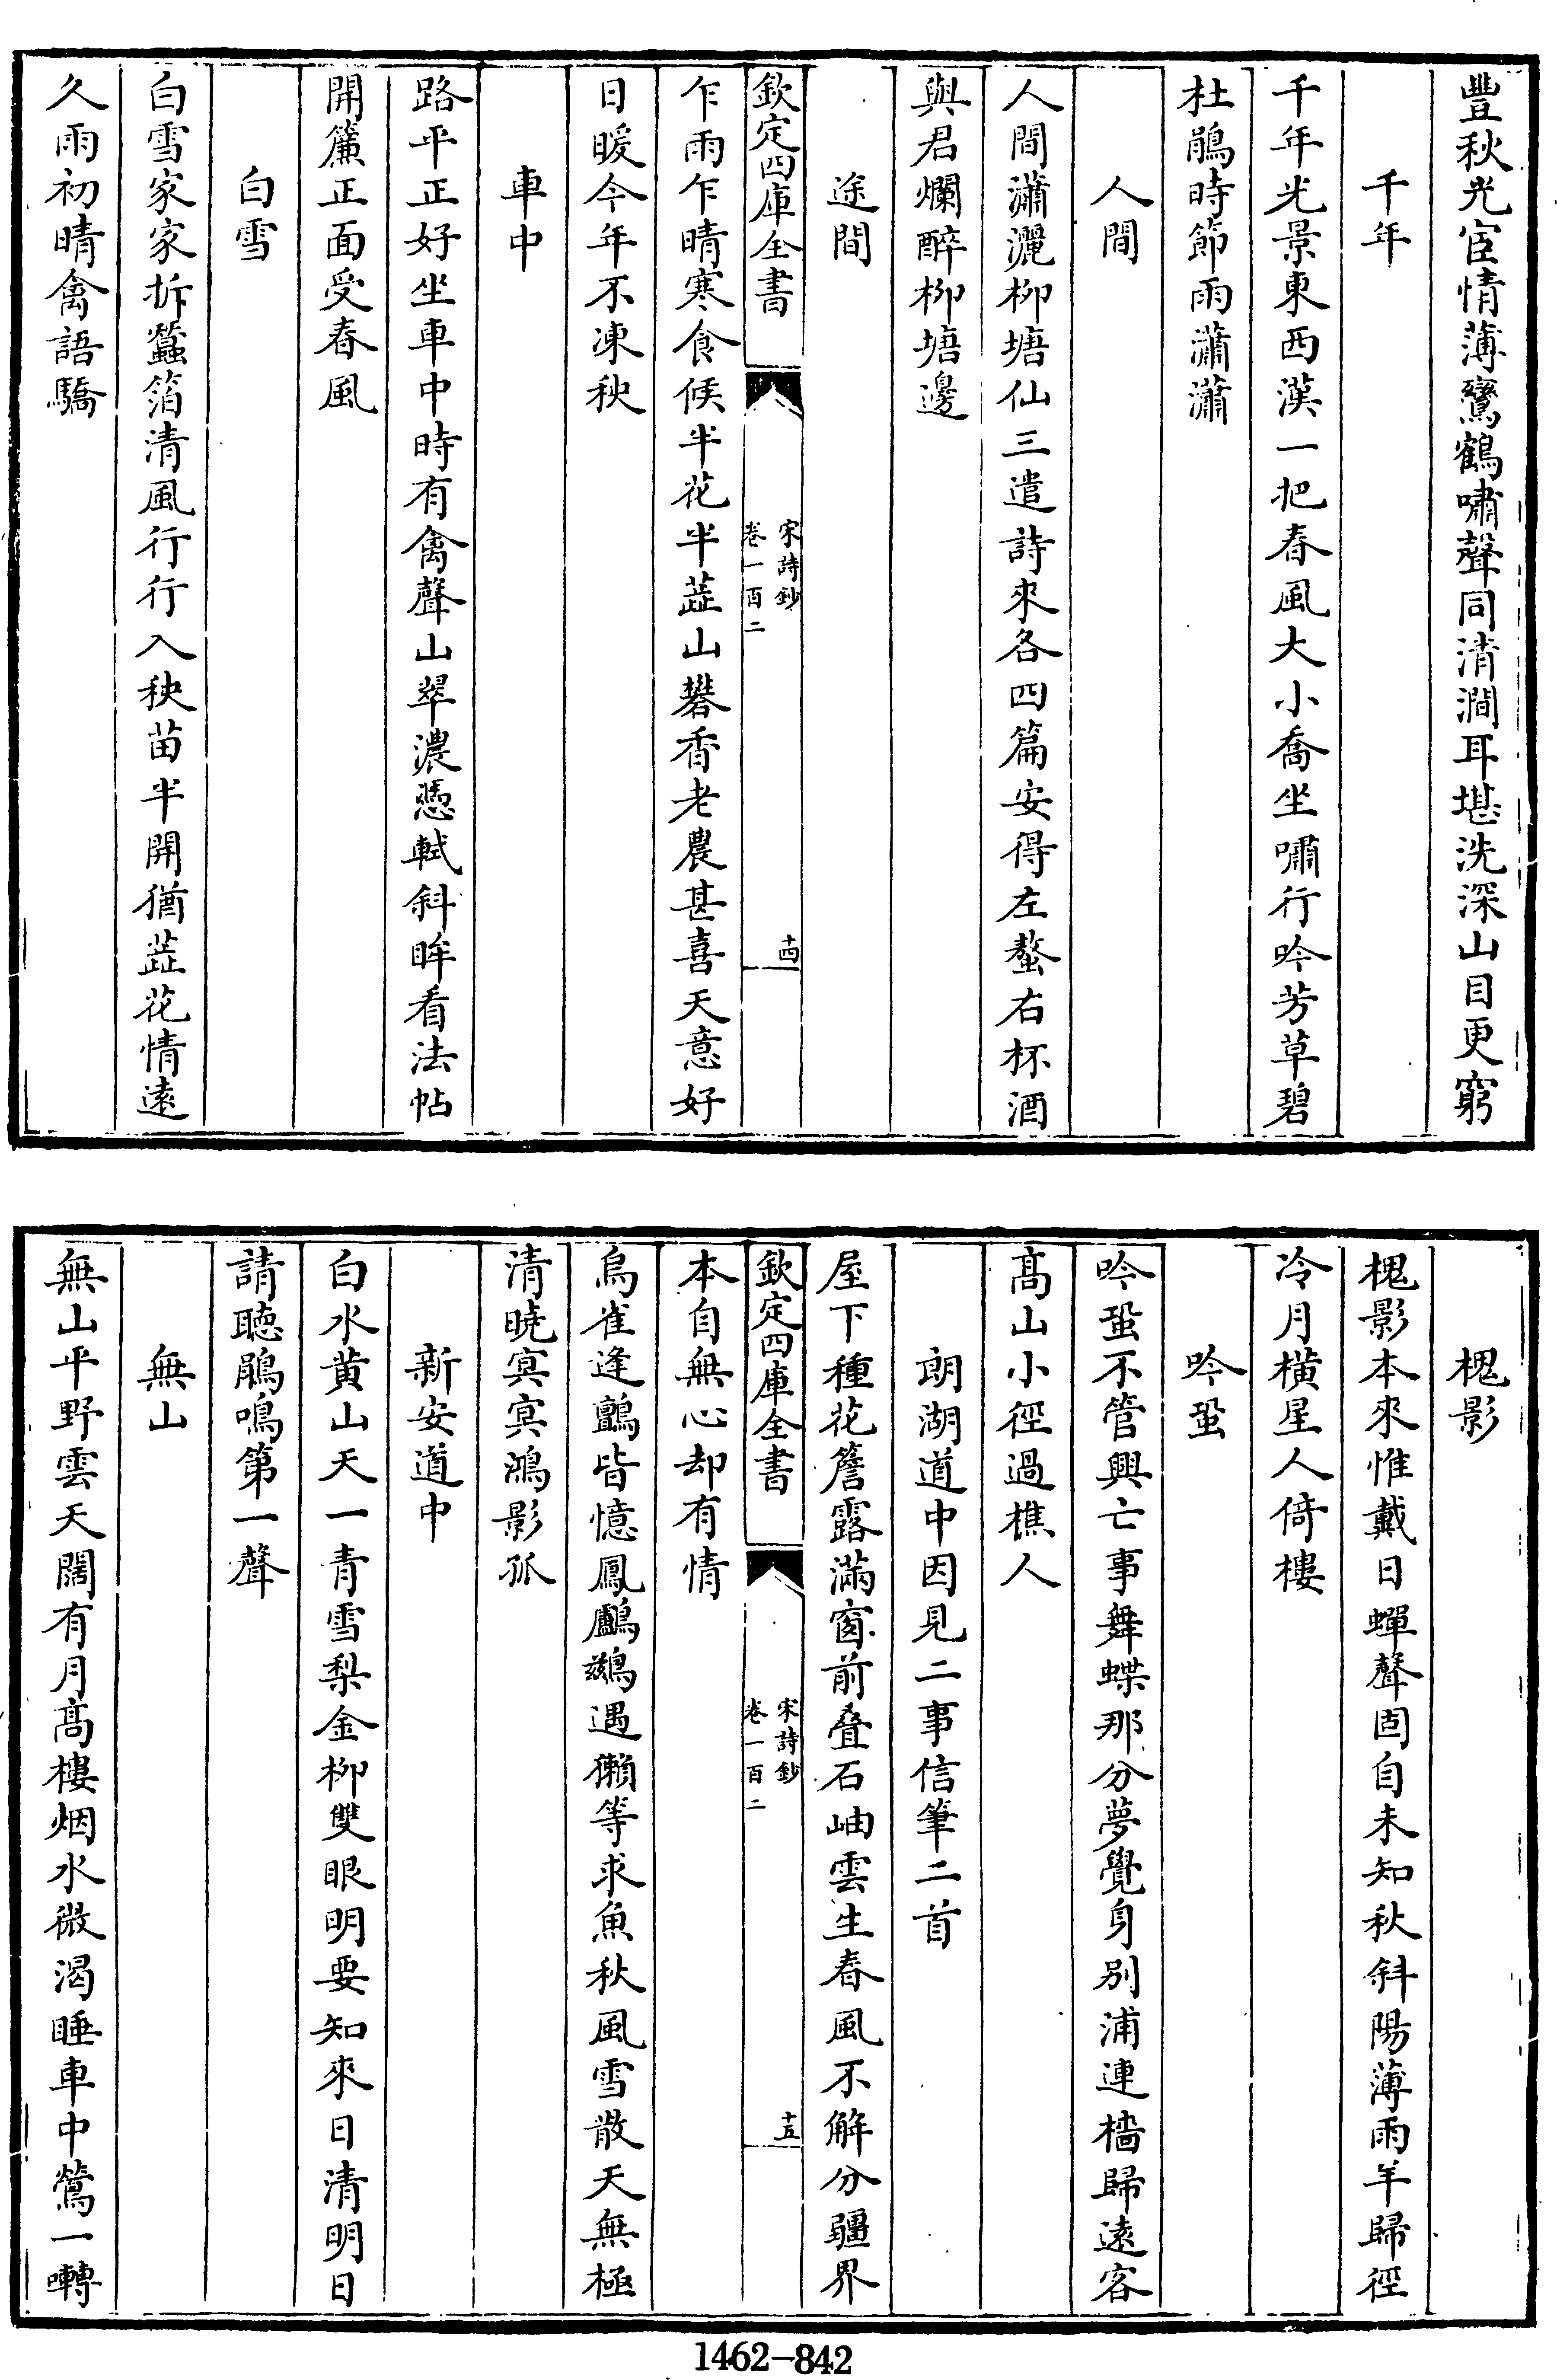 豐秋光宦情薄鸞鶴嘯聲同清澗耳堪洗深山目更窮
千年
千年光景東西漢一把春風大小喬坐嘯行吟芳草碧
杜鵑時節雨瀟瀟
人間
人間瀟灑柳塘仙三遣詩來各四篇安得左螯右杯酒
與君爛醉柳塘邊
途間
欽定四庫全書
宋詩鈔
卷一百二
十四
乍雨乍晴寒食候半花半蕋山礬香老農甚喜天意好
日暖今年不凍秧
車中
路平正好坐車中時有禽聲山翠濃憑軾斜眸看法帖
開簾正面受春風
白雪
白雪家家拆蠶箔清風行行入秧苗半開猶蕋花情遠
久雨初晴禽語驕
槐影
槐影本來惟戴日蟬聲固自未知秋斜陽薄雨羊歸徑
冷月橫星人倚樓
吟蛩
吟蛩不管興亡事舞蝶那分夢覺身別浦連檣歸遠客
髙山小徑過樵人
朗湖道中因見二事信筆二首
屋下種花簷露滿窗前叠石岫雲生春風不解分疆界
欽定四庫全書
宋詩鈔
卷一百二
十五
本自無心却有情
烏雀逢鸇皆憶鳳鸕鷀遇獺等求魚秋風雪散天無極
清曉㝠㝠鴻影孤
新安道中
白水黄山天一青雪梨金柳雙眼明要知來日清明日
請聽鵑鳴第一聲
無山
無山平野雲天闊有月髙樓烟水微渴睡車中鶯一囀
1462-842